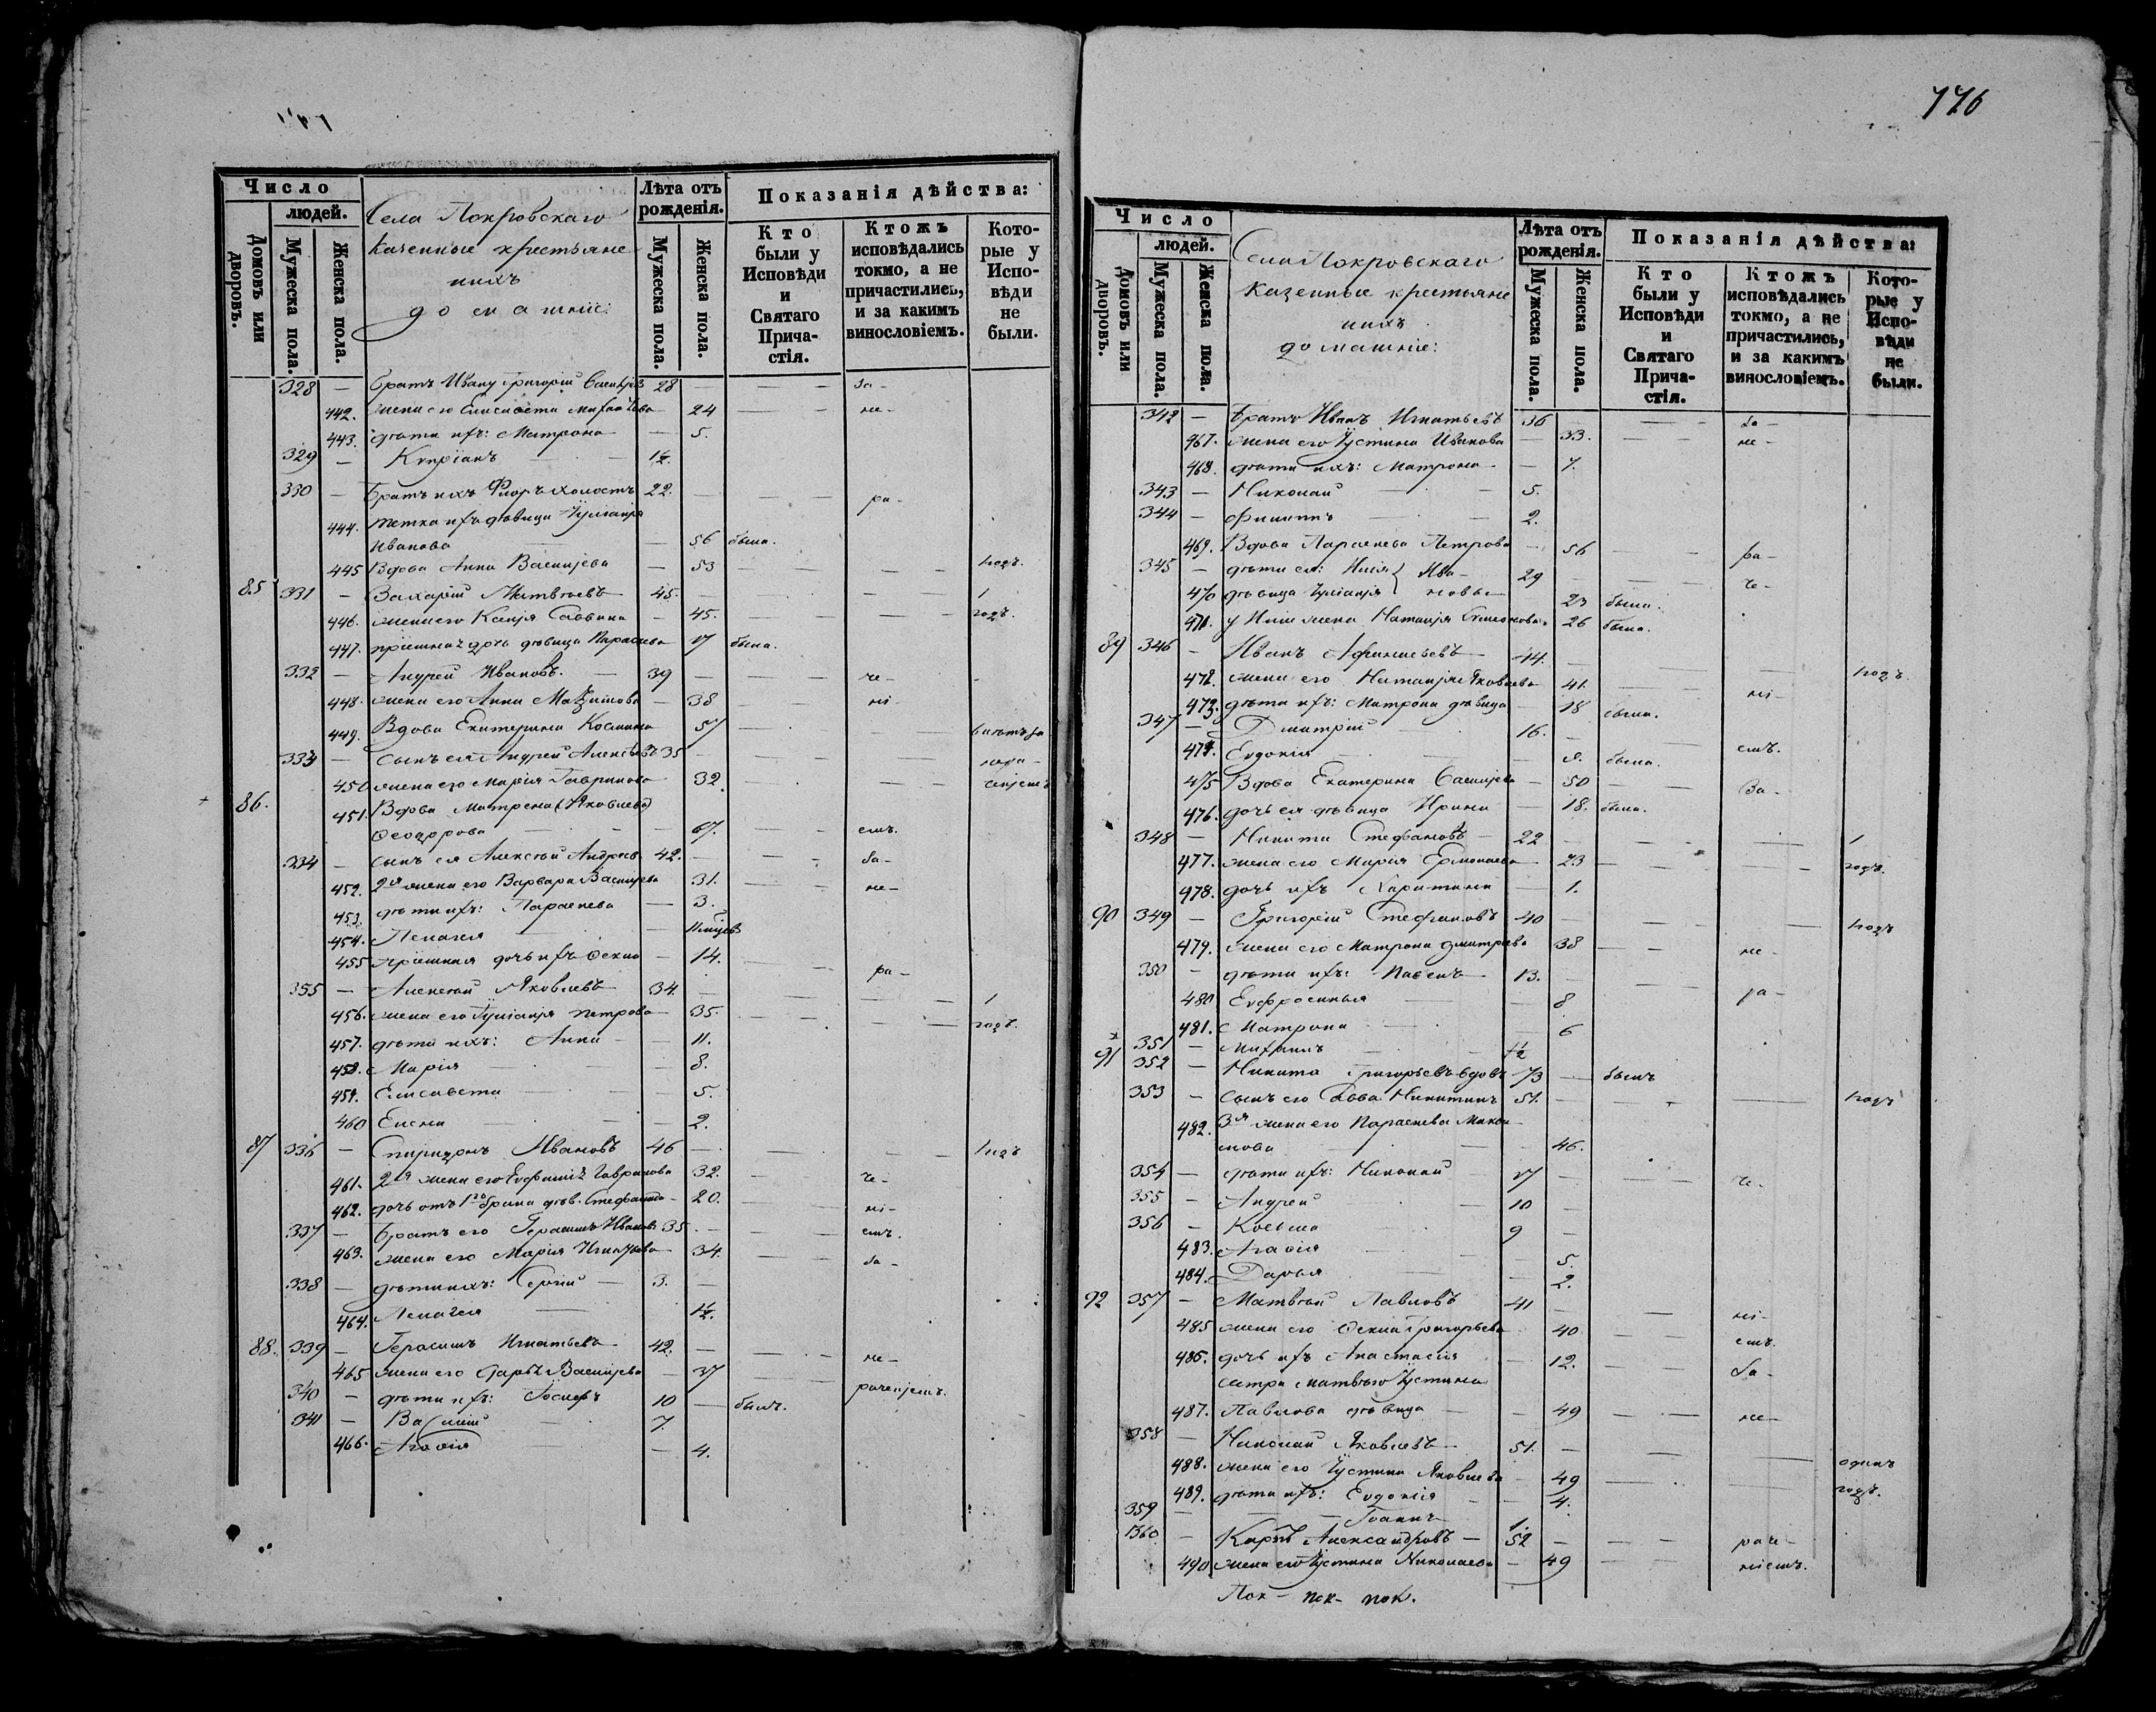 776
Число
людей.
Домовъ или дворовъ.
Мужеска пола.
Женска пола.
Села Покровскаго
казенные крестьяне
ихъ
домашніе:
Лѣта отъ рожденія.
Мужеска пола.
Женска пола.
Показанія дѣйства:
Кто были у Исповѣди и Святаго Прича-стія.
Ктожъ исповѣдались токмо, а не причастились, и за какимъ винословіемъ.
Кото-рые у Испо-вѣди не были.
328 — братъ Ивану Григорій 28 — — — за-
442. жена его Елисавета — 24 — — не-
443. дѣти ихъ: Матрона — 5.
329 — Кѵпріанъ — 1/2.
330 — братъ ихъ Флоръ холостъ 22. — — — ра-
444. тетка ихъ дѣвица Іуліанія
Иванова — 56 была.
445 Вдова Анна Васильева — 53 — — — 1 годъ.
85 331 — Захарій Матвѣевъ 45. — — — 1
446. жена его Ксенія Саввина — 45. — — — годъ.
447. пріемная дочь дѣвица Параскева 17 была.
332 — Андрей Ивановъ. — 39 — — — че-
448. жена его Анна Маѯимова — 38 — — ні-
449. Вдова Екатерина Космина 57 — —
333 — сынъ ея Андрей Алексѣевъ 35 —
450 жена его Марія Гаврилова 32.
86. 451. Вдова Матрона (Яковлева)
Ѳеодорова — 67. — — емъ.
334 — сынъ ея Алексѣй Андреевъ 42. — — — за-
452. 2я жена его Варвара Васильева 31. — — не-
453. дѣти ихъ: Параскева — 3.
454. Пелагея
455 пріемная дочь ихъ Ѳекла — 14. — — ра-
335 — Алексѣй Яковлевъ 34. — — — 1
456. жена его Іуліанія Петрова 35. — — — годъ.
457. дѣти ихъ: Анна — 11.
458. Марія — 8.
459. Елисавета — 5.
460 Елена — 2.
87 336 — Спиридонъ Ивановъ 46 — — — 1 годъ
461. 2я жена его Евфимія Гаврилова 32. — — че-
462. дочь отъ 1го брака дѣв. Стефанида 20. — — ні-
337 — братъ его Герасимъ Ивановъ 35. — — емъ.
463. жена его Марія Игнатьева 34. — — за-
338 — дѣти ихъ: Сергій — 3. —
464. Пелагея — 1/2.
88. 339 — Герасимъ Игнатьевъ 42. — — — не-
465 жена его Дарья Васильева — 37 — — раченіемъ.
340 — дѣти ихъ: Іосифъ 10 — былъ.
341 — Василій 7.
466. Агаѳія — 4.
Число
людей.
Домовъ или дворовъ.
Мужеска пола.
Женска пола.
Села Покровскаго
казенные крестьяне
ихъ
домашніе:
Лѣта отъ рожденія.
Мужеска пола.
Женска пола.
Показанія дѣйства:
Кто были у Исповѣди и Святаго Прича-стія.
Ктожъ исповѣдались токмо, а не причастились, и за какимъ винословіемъ.
Кото-рые у Испо-вѣди не были.
342 — братъ Иванъ Игнатьевъ 36 — — — за-
467. жена его Іустина Иванова — 33. — — не-
468. дѣти ихъ: Матрона — 7.
343 — Николай — 5.
344 — Филиппъ — 2.
469. Вдова Параскева Петрова — 56 — — ра-
345 — дѣти ея: Илія } Ива- 29 — — — че-
470 дѣвица Іуліанія } новы 23 была.
471. у Иліи жена Наталія Симонова 26 была.
89 346 — Иванъ Афанасьевъ 44. — — — 1 годъ.
472. жена его Наталія Яковлева 41. — — ні-
473. дѣти ихъ: Матрона дѣвица 18 была.
347 — Димитрій 16. — емъ.
474. Евдокія была.
475 Вдова Екатерина Васильева — 50 — — За-
476. дочь ея дѣвица Ирина — 18. была.
348 — Никита Стефановъ — 22 — — — 1
477. жена его Марія Ермолаева — 23 — — — годъ.
478. дочь ихъ Харитина — 1.
90 349 — Григорій Стефановъ 40 — — — 1 годъ
479. жена его Матрона Димитріева 38 — — не-
350 — дѣти ихъ: Павелъ 13. — — — ра-
480 Евфросинья — 8.
481. Матрона — 6
351 — Михаилъ 1/2
91 352 — Никита Григорьевъ вдовъ 73 — былъ
353 — сынъ его Савва Никитинъ 51. — — — 1 годъ
482. 3я жена его Параскева
— 46.
354 — дѣти ихъ: Николай 17 — — — че-
355 — Андрей 10 —
356 — Косьма 9 —
483. Агаѳія — 5.
484. Дарья — 2.
92 357 — Матвѣй Павловъ 41 — — — ні-
485 жена его Ѳекла Григорьева 40 — — емъ.
486. дочь ихъ Анастасія — 12. — — За-
сестра Матвѣю Іустина
487. Павлова дѣвица — 49 — — не-
358 — Николай Яковлевъ 51. — — — одинъ
488. жена его Іустина Яковлева — 49 — — — годъ.
489. дѣти ихъ: Евдокія — 4.
359 — Іоаннъ 1.
360 — Карпъ Александровъ — 52 — — — раче-
490 жена его Іустина Николаева — 49 — — ніемъ.
Пок- пок- пок.